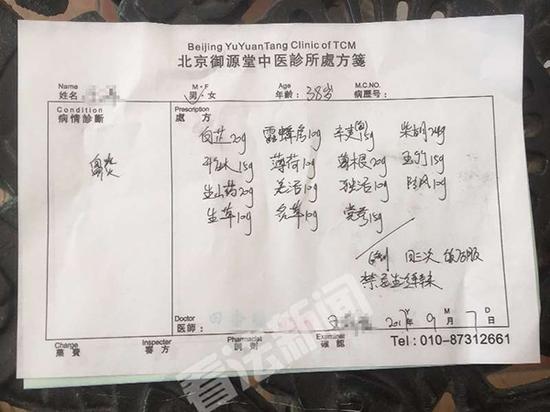 Beijing YuYuanTang Clinic of TCM
北京御源堂中医診所處方箋
Name M·F Age M.C.NO.
姓名: 男/女 年齡: 38岁 病歷号:
Condition Prescription
病情診斷 處方
白芷20g 露蜂房10g 辛夷15g 柴胡24g
鼻炎 15g 薄荷10g 葛根20g 玉竹15g
生山药20g 羌活10g 独活10g 防风10g
生草10g 10g 党参15g
日三次 饭后服
禁忌生辣
Doctor
医師: 2017 Y 9 M 7 D
Charge Inspecter Pharmacist Examiner Tel: 010-87312661
藥費 審方 調劑 確認
看法新闻